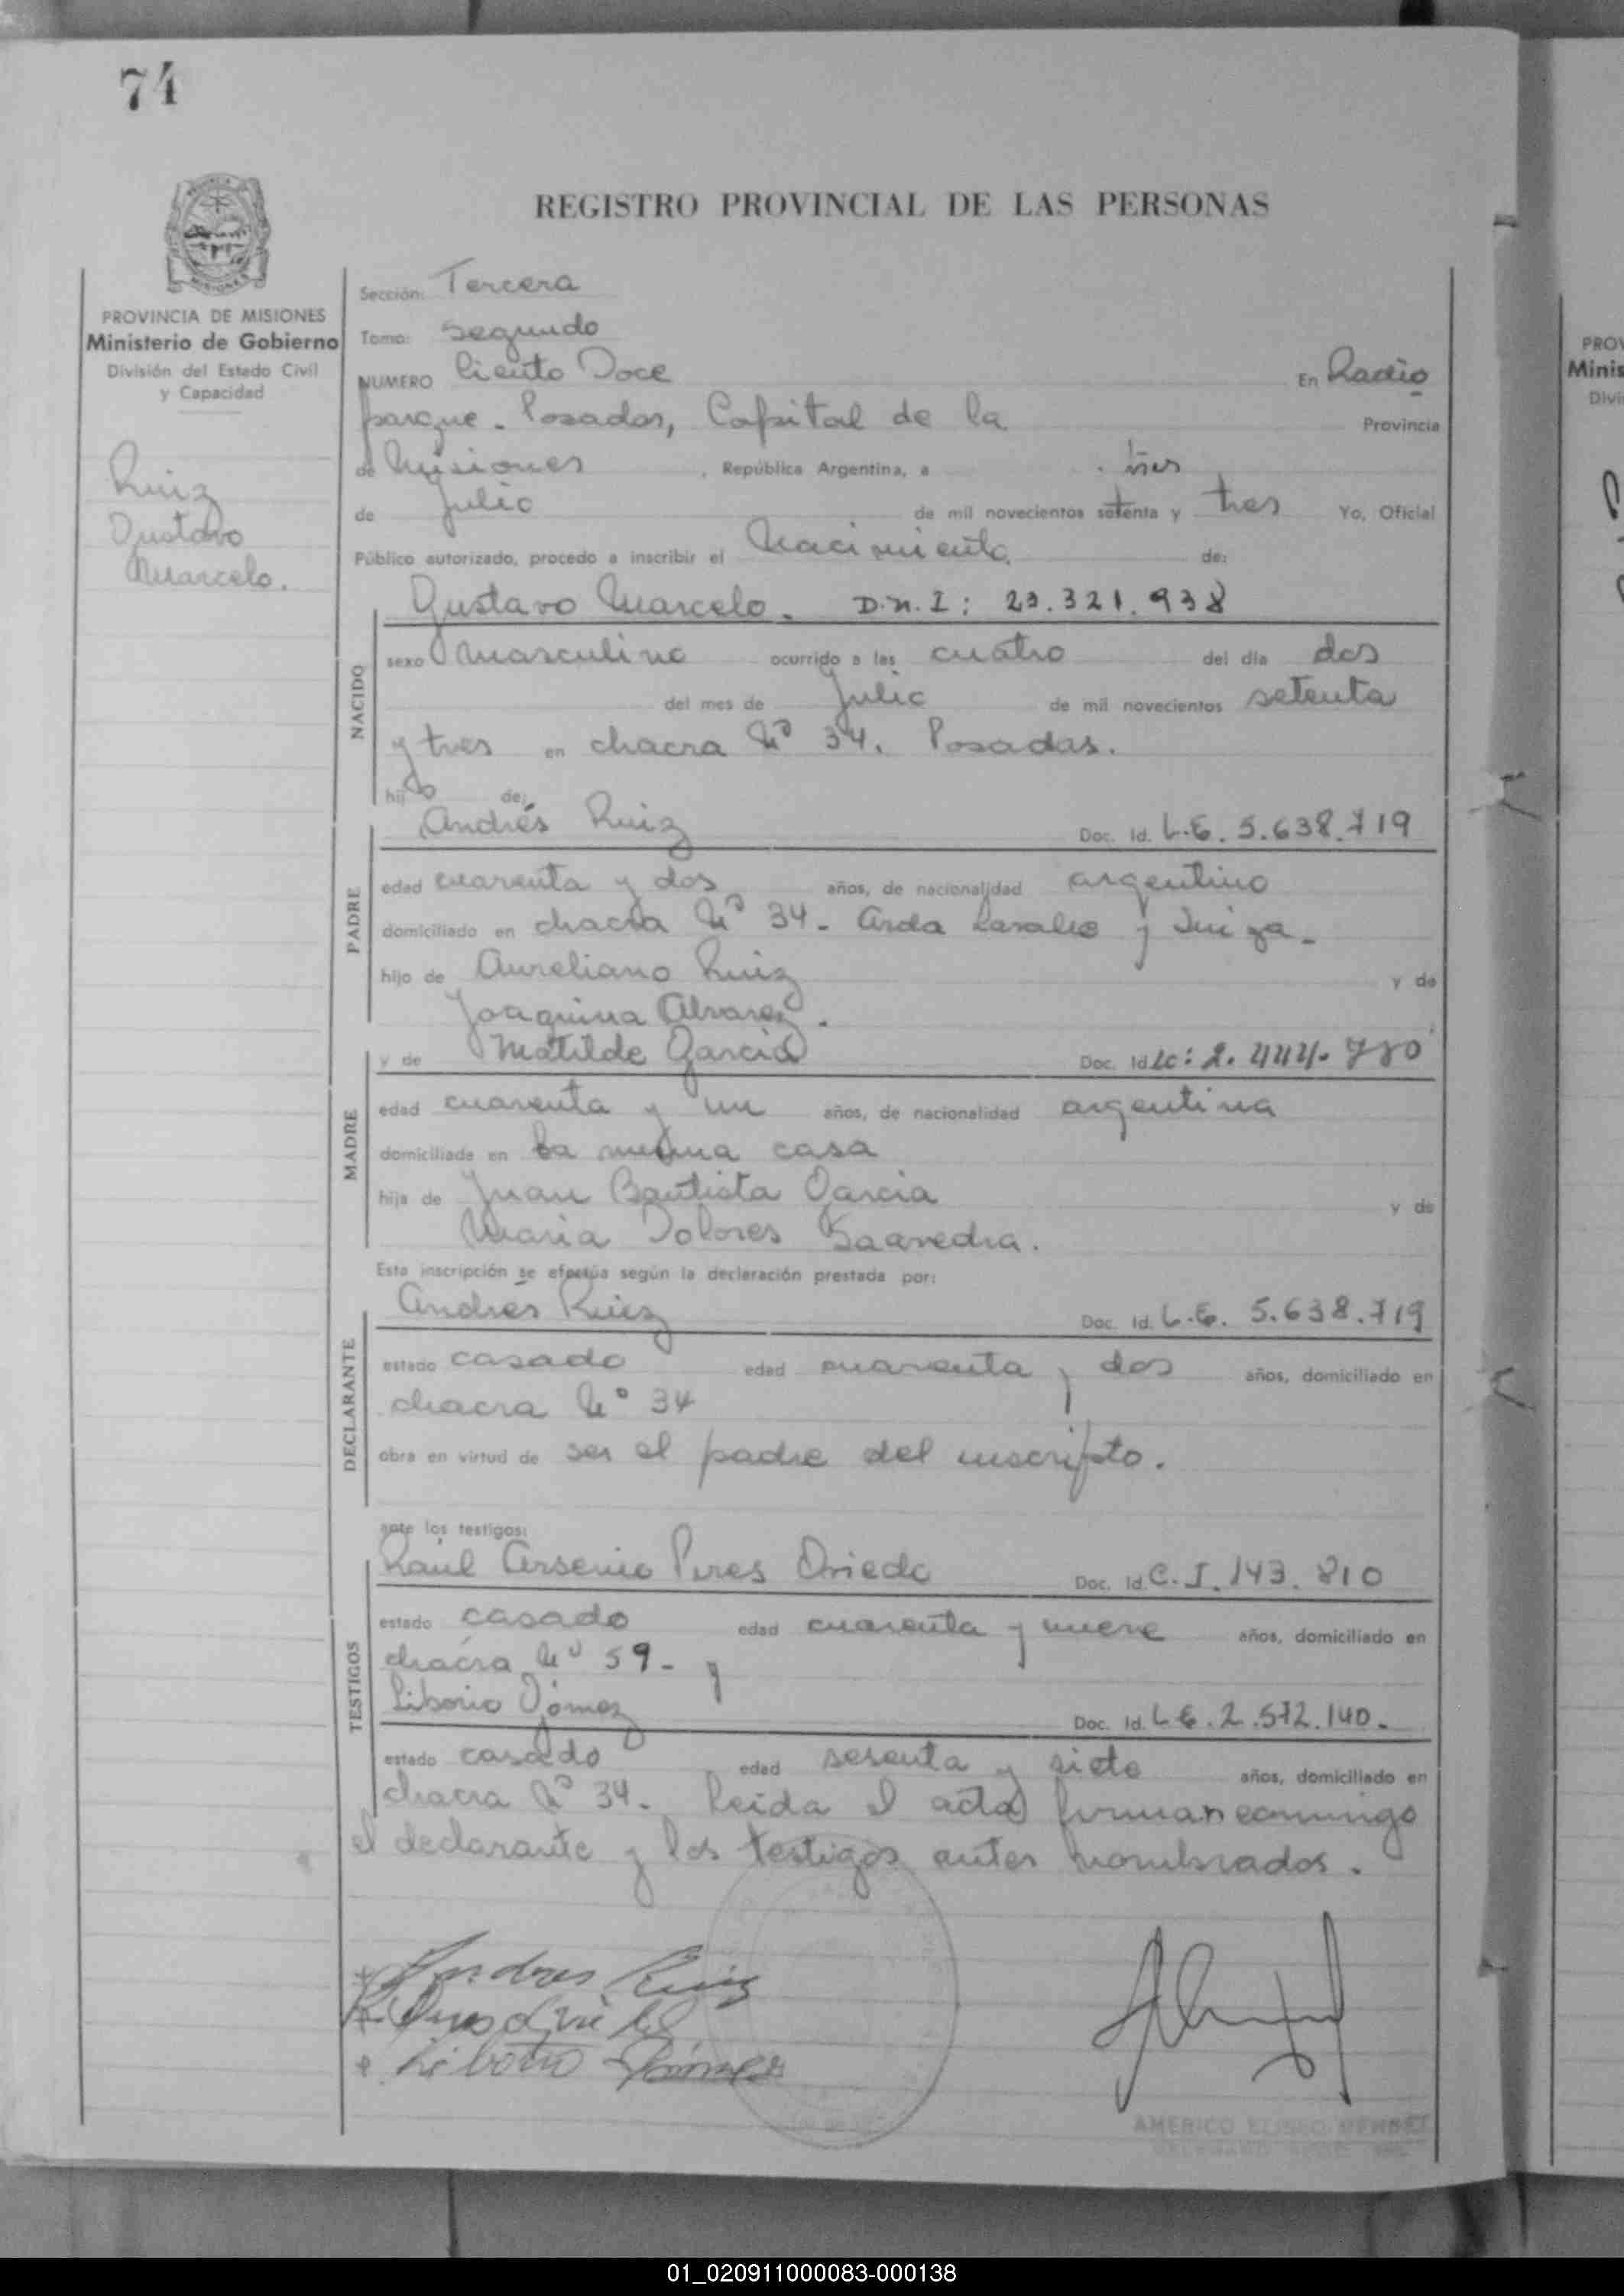 74
REGISTRO PROVINCIAL DE LAS PERSONAS
PROVINCIA DE MISIONES
Ministerio de Gobierno
División del Estado Civil
y Capacidad
Ruiz
Gustavo
Marcelo.
Sección: Tercera
Tomo: Segundo
NUMERO Ciento Doce En Radio
parque. Posadas, Capital de la Provincia
de Misiones, República Argentina, a tres
de Julio de mil novecientos setenta y tres Yo, Oficial
Público autorizado, procedo a inscribir el Nacimiento de:
Gustavo Marcelo. D.N.I: 23.321.938
NACIDO
sexo Masculino ocurrido a las cuatro del día dos
del mes de Julio de mil novecientos setenta
y tres en chacra Nº 34. Posadas.
hijo de:
Andrés Ruiz Doc. Id. L.E. 5.638.719
PADRE
edad cuarenta y dos años, de nacionalidad argentino
domiciliado en chacra Nº 34 - Avda Lavalle y Suiza -
hijo de Aureliano Ruiz y de
Joaquina Alvarez.
y de Matilde Garcia Doc. Id LC: 2.444.780
MADRE
edad cuarenta y un años, de nacionalidad argentina
domiciliada en La misma casa
hija de Juan Bautista Garcia y de
Maria Dolores Saavedra.
Esta inscripción se efectúa según la declaración prestada por:
Andrés Ruiz Doc. Id. L.E. 5.638.719
DECLARANTE
estado casado edad cuarenta y dos años, domiciliado en
chacra Nº 34
obra en virtud de ser el padre del inscripto.
ante los testigos:
Raúl Arsenio Pires Oviedo Doc. Id. C.I. 143.810
TESTIGOS
estado casado edad cuarenta y nueve años, domiciliado en
chacra Nº 59 - y
Liborio Gómez Doc. Id. L.E. 2.572.140.
estado casado edad sesenta y siete años, domiciliado en
chacra Nº 34. Leida el acta firman conmigo
el declarante y los testigos antes nombrados.
Andres Ruiz
Liborio Gómez
AMERICO ELISEO
PROV
Minis
Divi
01_020911000083-000138